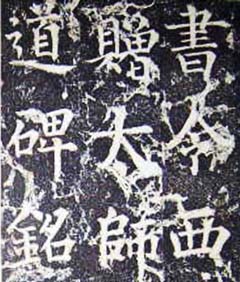 書令西
贈太師
道碑銘